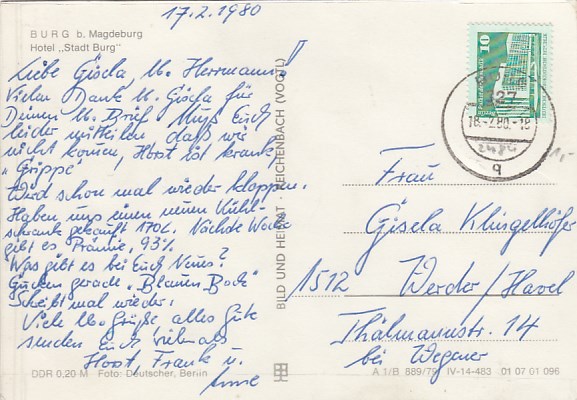 17.2.1980
BURG b. Magdeburg
Hotel „Stadt Burg"
Liebe Gisela, lb. Herrmann!!
Vielen Dank lb. Gisela für
Deinen lb. Brief. Muß Euch
leider mitteilen daß wir
nicht kommen, Horst ist krank,
„Grippe"
Wird schon mal wieder kloppen.
Haben uns einen neuen Kühl-
schrank gekauft 170 L. Nächste Woche
gibt es Prämie, 93%
Was gibt es bei Euch Neues?
Gucken gerade „Blauen Bock"
Schreibt mal wieder!
Viele lb. Grüße, alles Gute
senden Euch vielmals
Horst, Frank u.
Anne
DDR 0,20 M Foto: Deutscher, Berlin
BILD UND HEIMAT · REICHENBACH (VOGTL)
10
18.-2.80.-18
q
1,-
Frau
Gisela Klingelhöfer
1512 Werder/Havel
Thälmannstr. 14
bei Wegener
A 1/B 889/79 IV-14-483 01 07 01 096